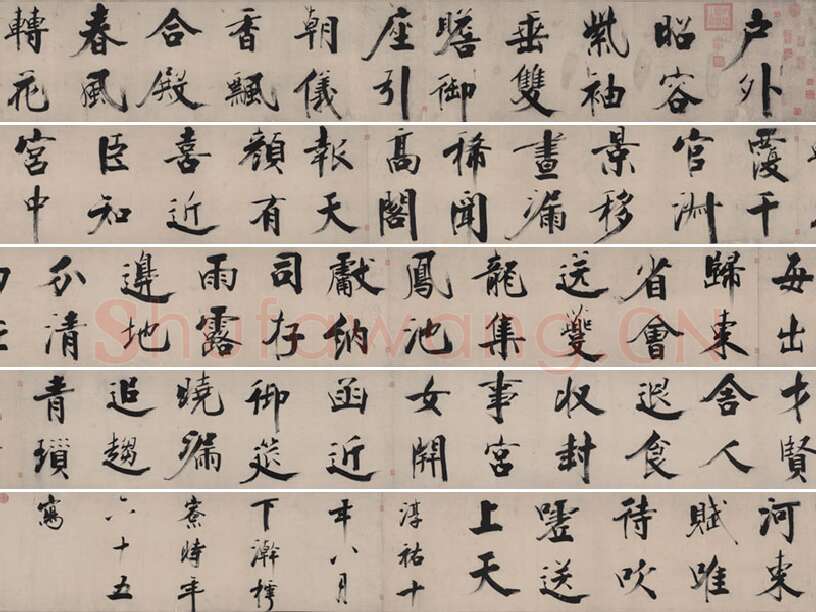 户外
昭容
紫袖
垂雙
瞻御
座引
朝儀
香飄
合殿
春風
轉花
覆千
官淑
景移
晝漏
稀聞
高閣
報天
顏有
喜近
臣知
宮中
每出
歸東
省會
送夔
龍集
鳳池
獻納
司存
雨露
邊地
分清
才賢
舍人
退食
收封
事宮
女開
函近
御筵
曉漏
追趨
青瑣
河東
賦唯
待吹
噓送
上天
淳祐十
年八月
下澣樗
寮時年
六十五
寫
Shufawang.CN